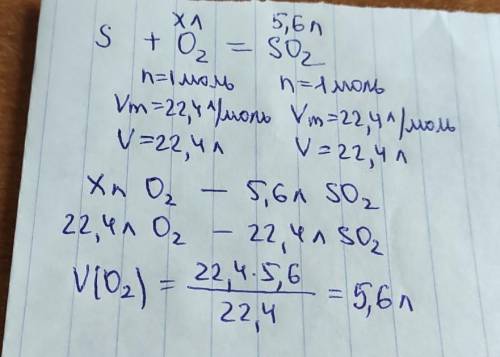 xл 5,6л
S + O₂ = SO₂
n=1моль n=1моль
Vm=22,4л/моль Vm=22,4л/моль
V=22,4л V=22,4л
Xл O₂ — 5,6л SO₂
22,4л O₂ — 22,4л SO₂
V(O₂) = 22,4·5,6 / 22,4 = 5,6л